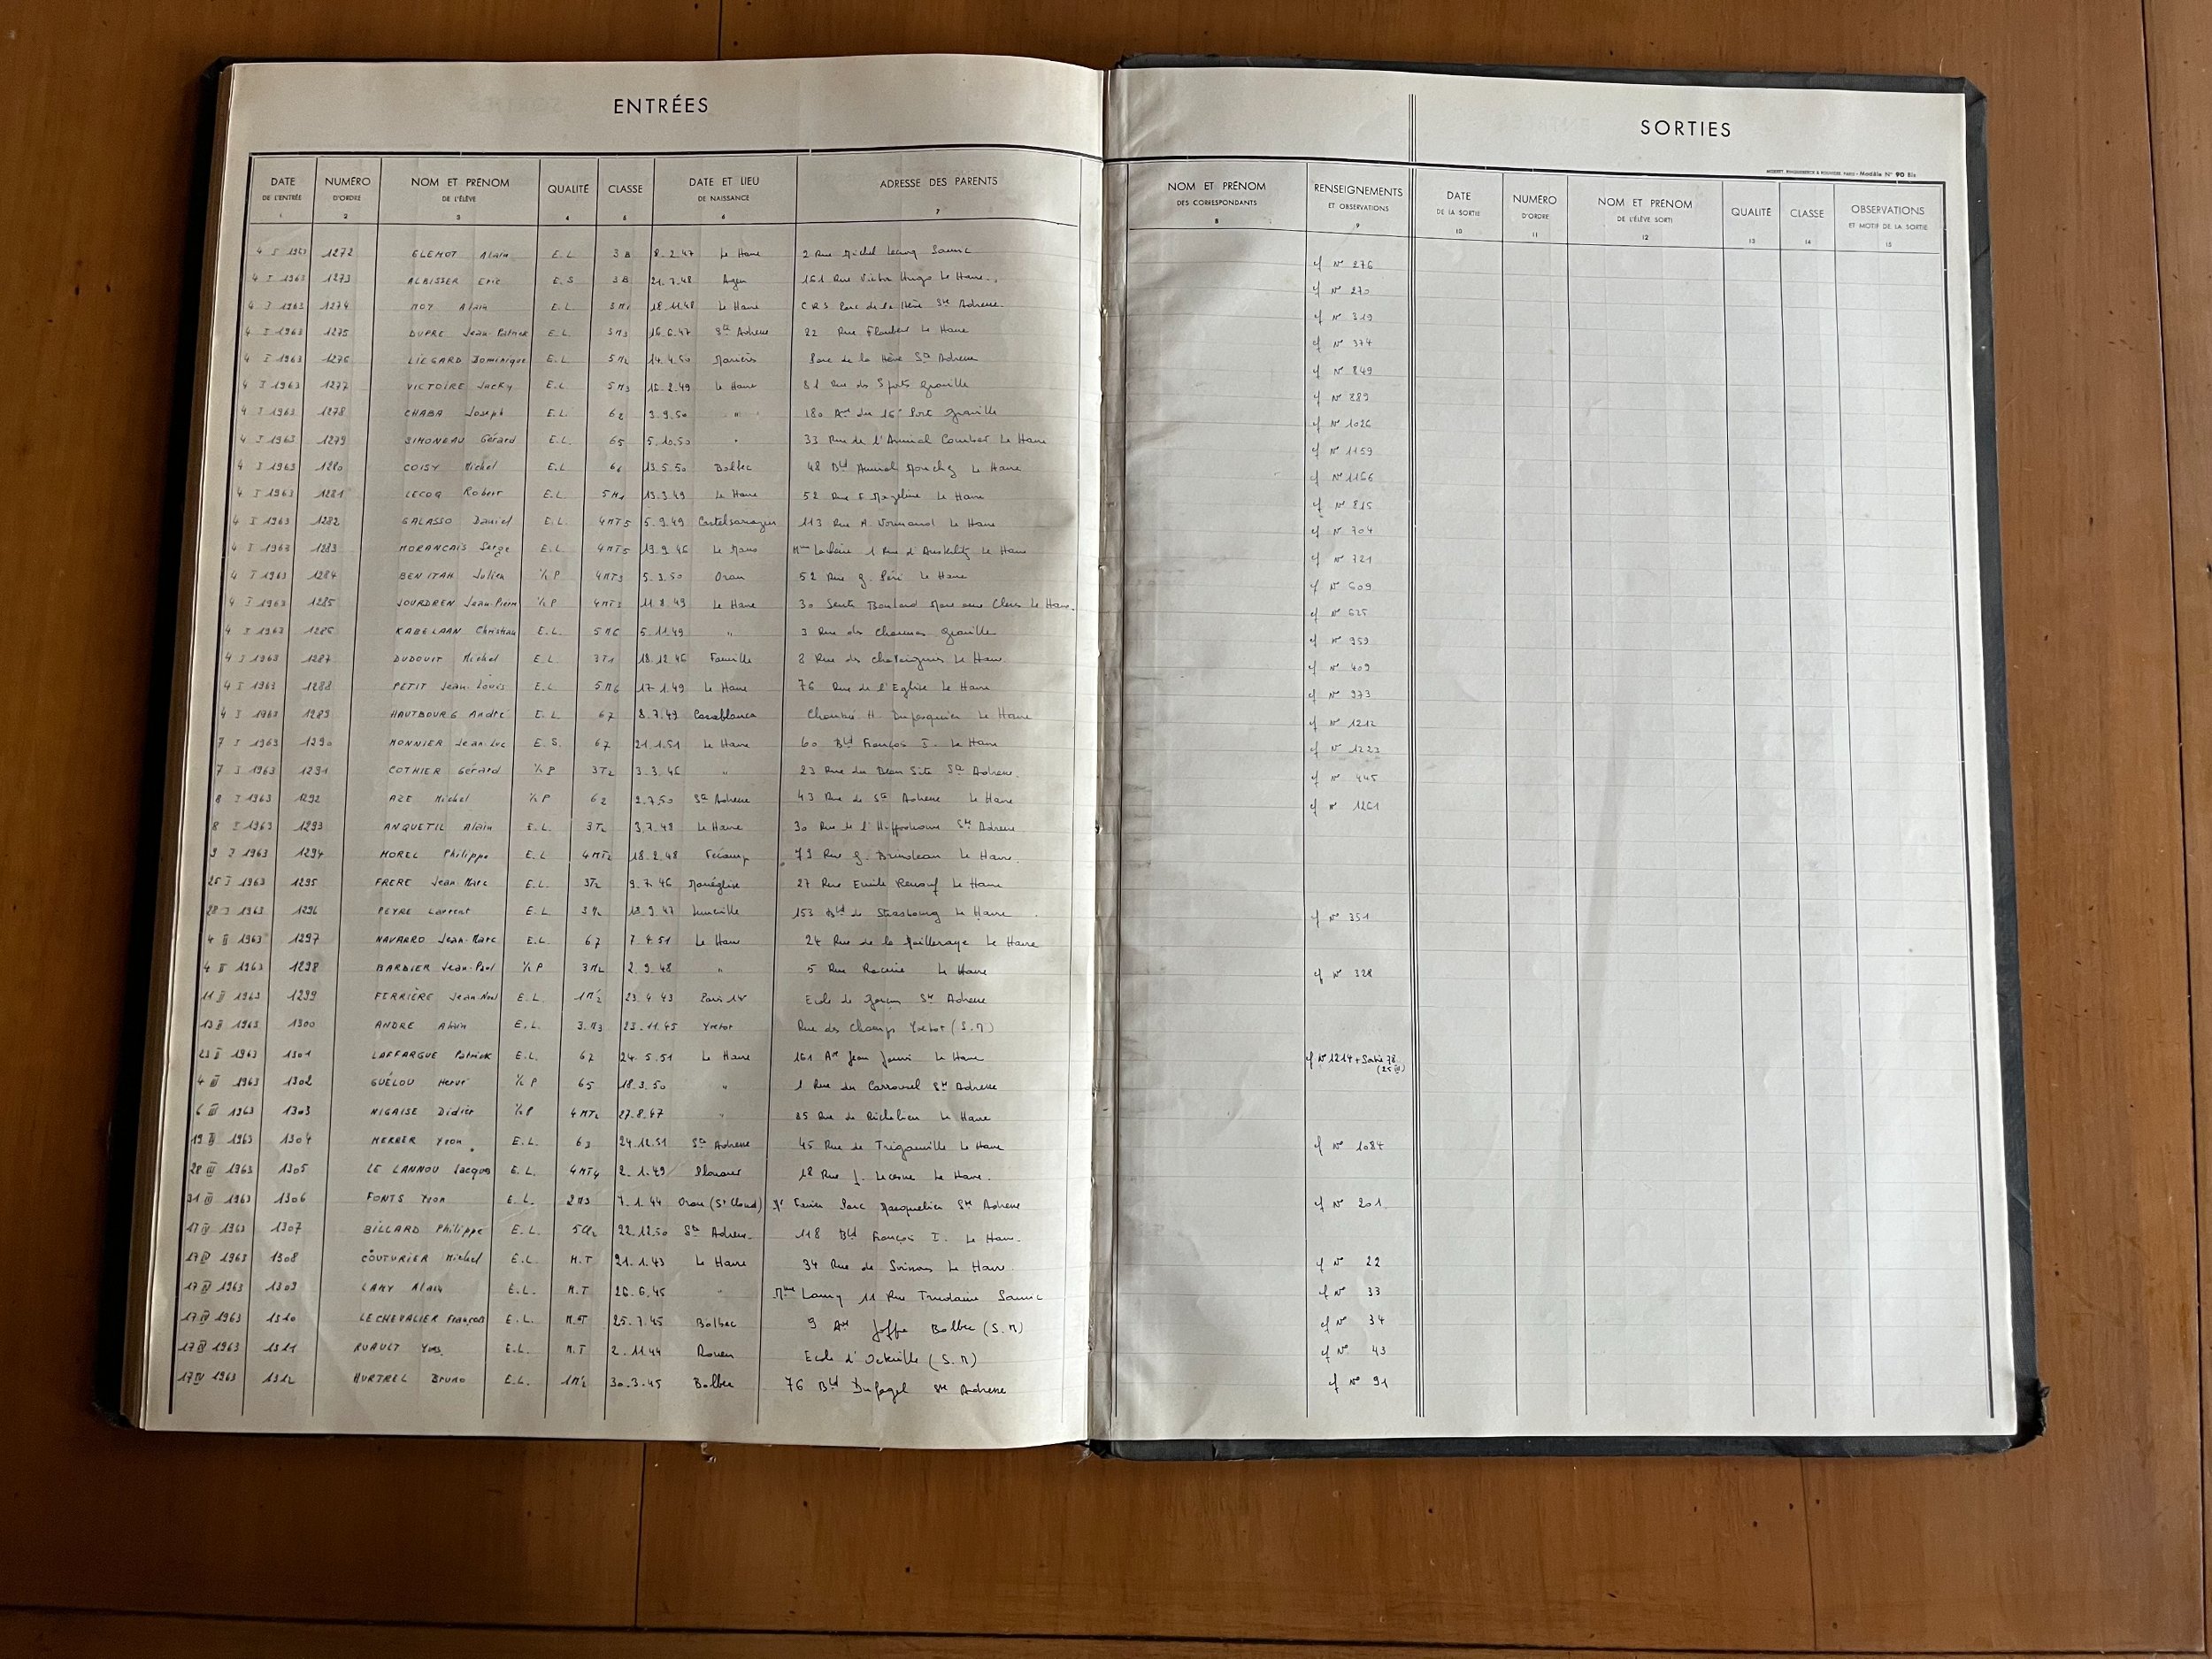 ENTRÉES
DATE DE L'ENTRÉE 1 NUMÉRO D'ORDRE 2 NOM ET PRÉNOM DE L'ÉLÈVE 3 QUALITÉ 4 CLASSE 5 DATE ET LIEU DE NAISSANCE 6 ADRESSE DES PARENTS 7
4 I 1963 1272 Alain E.L 3B 8.2.47 Le Havre 2 Rue Michel Sanvic
4 I 1963 1273 Eric E.S 3B 21.7.48 Agen 161 Rue Victor Hugo Le Havre
4 I 1963 1274 Alain E.L 18.11.48 Le Havre C R S Parc de la Hève Ste Adresse
4 I 1963 1275 DUPRE Jean-Patrick E.L 3M3 16.6.47 Ste Adresse 22 Rue Flaubert Le Havre
4 I 1963 1276 LIEGARD Dominique E.L 5M2 14.4.50 Parc de la Hève Ste Adresse
4 I 1963 1277 VICTOIRE Jacky E.L 5M3 49 Le Havre 81 Rue des Graville
4 I 1963 1278 CHABA Joseph E.L. 62 9.9.50 " 180 Graville
4 I 1963 1279 SIMONEAU Gérard E.L. 65 5.10.50 " 33 Rue de l'Amiral Courbet Le Havre
4 I 1963 1280 COISY Michel E.L 13.5.50 Bolbec 48 Bld Amiral Mouchez Le Havre
4 I 1963 1281 LECOQ Robert E.L 5M1 13.3.49 Le Havre 52 Rue F. Mazeline Le Havre
4 I 1963 1282 GALASSO Daniel E.L. 4MT5 5.9.49 Castelsarrazin 113 Rue A. Normand Le Havre
4 I 1963 1283 MORANCAIS Serge E.L 4MT5 19.9.46 Le Mans 1 Rue d'Austerlitz Le Havre
4 I 1963 1284 BENITAH Julien ½ P 4MT3 5.3.50 Oran 52 Rue G. Péri Le Havre
4 I 1963 1285 JOURDREN Jean-Pierre ½ P 4MT3 11.8.49 Le Havre 30 Sente Mare aux Clercs Le Havre
4 I 1963 1286 KABELAAN Christian E.L. 5M6 5.11.49 " 3 Rue des Graville
4 I 1963 1287 DUDOUIT Michel E.L. 3T1 18.12.46 8 Rue des Chataigniers Le Havre
4 I 1963 1288 PETIT Jean-Louis E.L 5M6 17.1.49 Le Havre 76 Rue de l'Eglise Le Havre
4 I 1963 1289 HAUTBOURG André E.L 67 8.7.49 Casablanca Le Havre
7 I 1963 1290 MONNIER Jean-Luc E.S. 67 21.1.51 Le Havre 60 Bld François I. Le Havre
7 I 1963 1291 COTHIER Gérard ½ P 3T2 3.3.46 " 23 Rue du Beau Site Ste Adresse
8 I 1963 1292 AZE Michel ½ P 62 2.7.50 Ste Adresse 43 Rue de Ste Adresse Le Havre
8 I 1963 1293 ANQUETIL Alain E.L. 3T2 3.7.48 Le Havre 30 Rue de l'Hippodrome Ste Adresse
9 I 1963 1294 MOREL Philippe E.L 4MT2 18.2.48 Fécamp 79 Rue G. Brindeau Le Havre
25 I 1963 1295 FRERE Jean-Marc E.L. 3T2 9.7.46 Manéglise 27 Rue Emile Renouf Le Havre
28 I 1963 1296 PEYRE Laurent E.L 19.9.47 Luneville 153 Bld de Strasbourg Le Havre
4 II 1963 1297 NAVARRO Jean-Marc E.L. 67 7.4.51 Le Havre 24 Rue de la Mailleraye Le Havre
4 II 1963 1298 BARBIER Jean-Paul ½ P 3M2 2.9.48 " 5 Rue Racine Le Havre
11 II 1963 1299 FERRIÈRE Jean-Noel E.L. 1M'2 23.4.43 Ecole de Garçons Ste Adresse
13 II 1963 1300 ANDRE Alain E.L. 3.M3 23.11.45 Yvetot Rue des Champs Yvetot (S.M)
23 II 1963 1301 LAFFARGUE Patrick E.L. 67 24.5.51 Le Havre 161 Ave Jean Jaurès Le Havre
4 III 1963 1302 GUÉLOU Hervé ½ P 65 18.3.50 " 1 Rue du Carrousel Ste Adresse
6 III 1963 1303 NIGAISE Didier ½ P 4MT2 27.8.47 " 85 Rue de Richelieu Le Havre
19 III 1963 1304 MERRER Yvon E.L. 63 24.12.51 Ste Adresse 45 Rue de Trigauville Le Havre
28 III 1963 1305 LE LANNOU Jacques E.L. 4MT4 2.1.49 Plouaret 18 Rue J. Lecesne Le Havre
31 III 1963 1306 FONTS Yvon E.L. 2M3 7.1.44 Oran (St Cloud) Parc Ste Adresse
17 IV 1963 1307 BILLARD Philippe E.L. 22.12.50 Ste Adresse 118 Bld François I. Le Havre
17 IV 1963 1308 COUTURIER Michel E.L. M.T 21.1.43 Le Havre 34 Rue de Le Havre
17 IV 1963 1309 LAMY Alain E.L. M.T 26.6.45 " Mme Lamy 11 Rue Trudaine Sanvic
17 IV 1963 1310 LECHEVALIER François E.L. M.T 25.7.45 Bolbec 9 Ave Joffre Bolbec (S.M)
17 IV 1963 1311 RUAULT Yves E.L. M.T 2.11.44 Rouen Ecole d'Octeville (S.M)
17 IV 1963 1312 HURTREL Bruno E.L. 1M'2 30.3.45 Bolbec 76 Bld Dufayel Ste Adresse
SORTIES
Modèle N° 90 Bis
NOM ET PRÉNOM DES CORRESPONDANTS 8 RENSEIGNEMENTS ET OBSERVATIONS 9 DATE DE LA SORTIE 10 NUMÉRO D'ORDRE 11 NOM ET PRÉNOM DE L'ÉLÈVE SORTI 12 QUALITÉ 13 CLASSE 14 OBSERVATIONS ET MOTIF DE LA SORTIE 15
cf N° 276
cf N° 270
cf N° 319
cf N° 374
cf N° 849
cf N° 889
cf N° 1026
cf N° 1159
cf N° 1166
cf N° 815
cf N° 704
cf N° 721
cf N° 609
cf N° 625
cf N° 959
cf N° 409
cf N° 973
cf N° 1212
cf N° 1223
cf N° 445
cf N° 1261
cf N° 351
cf N° 328
cf N° 1214 + Sortie 78
(25 III)
cf N° 1084
cf N° 201
cf N° 22
cf N° 33
cf N° 34
cf N° 43
cf N° 91